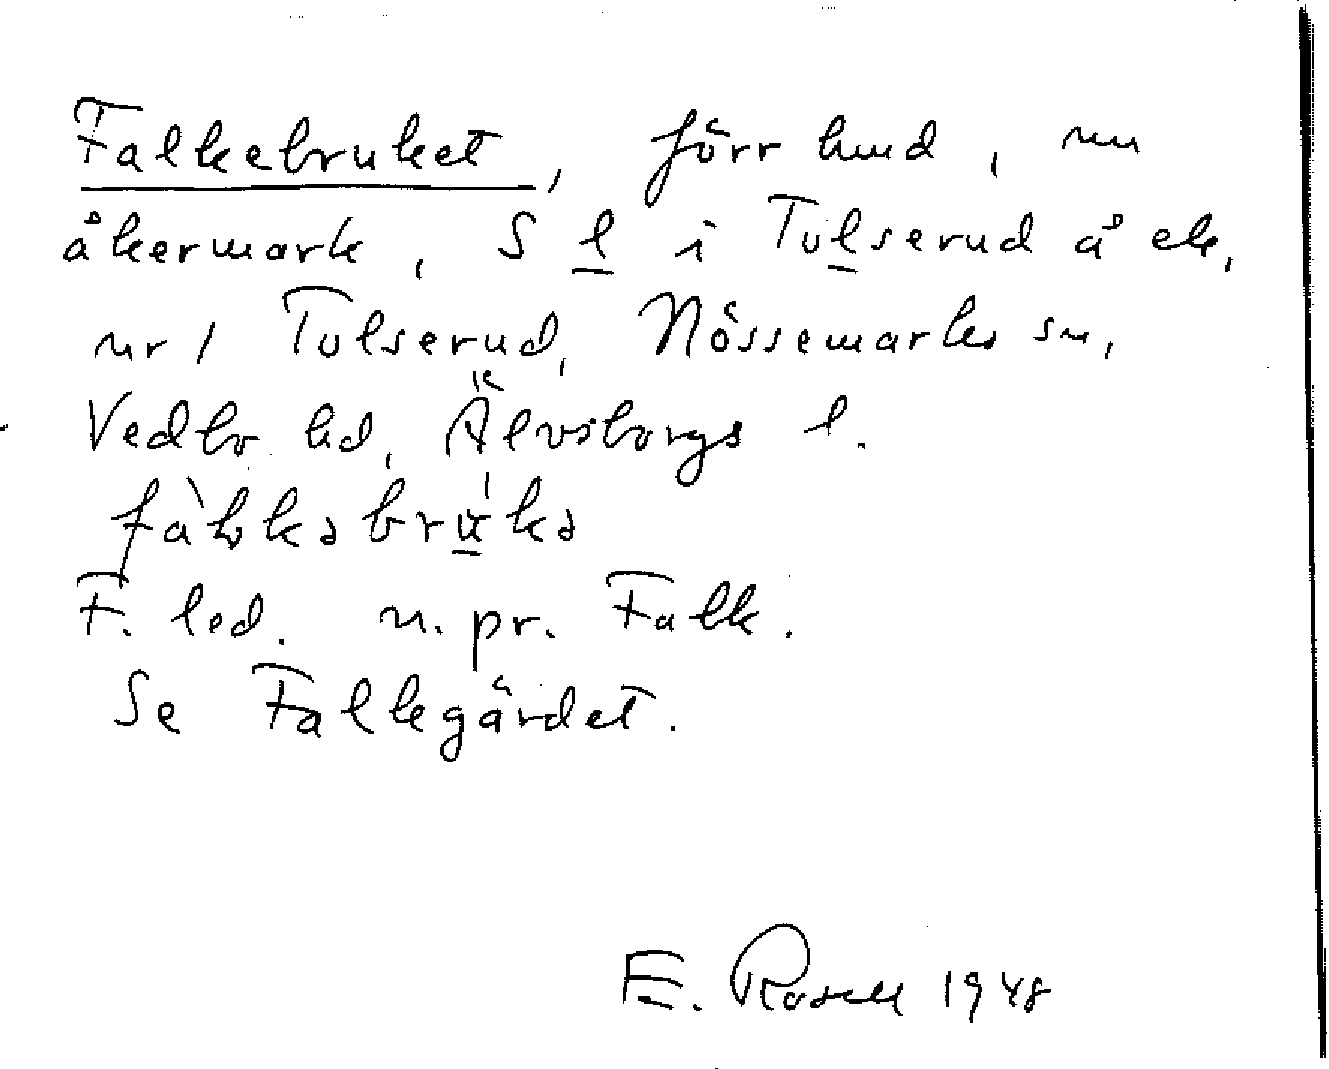 Falkebruket, förr hmd, nu
åkermark, S l i Tulserud å ek.
nr 1 Tulserud, Nössemarks sn,
Vedbo hd, Älvsborgs l.
F. led. n. pr. Falk.
Se Falkegärdet.
E. Rosell 1948